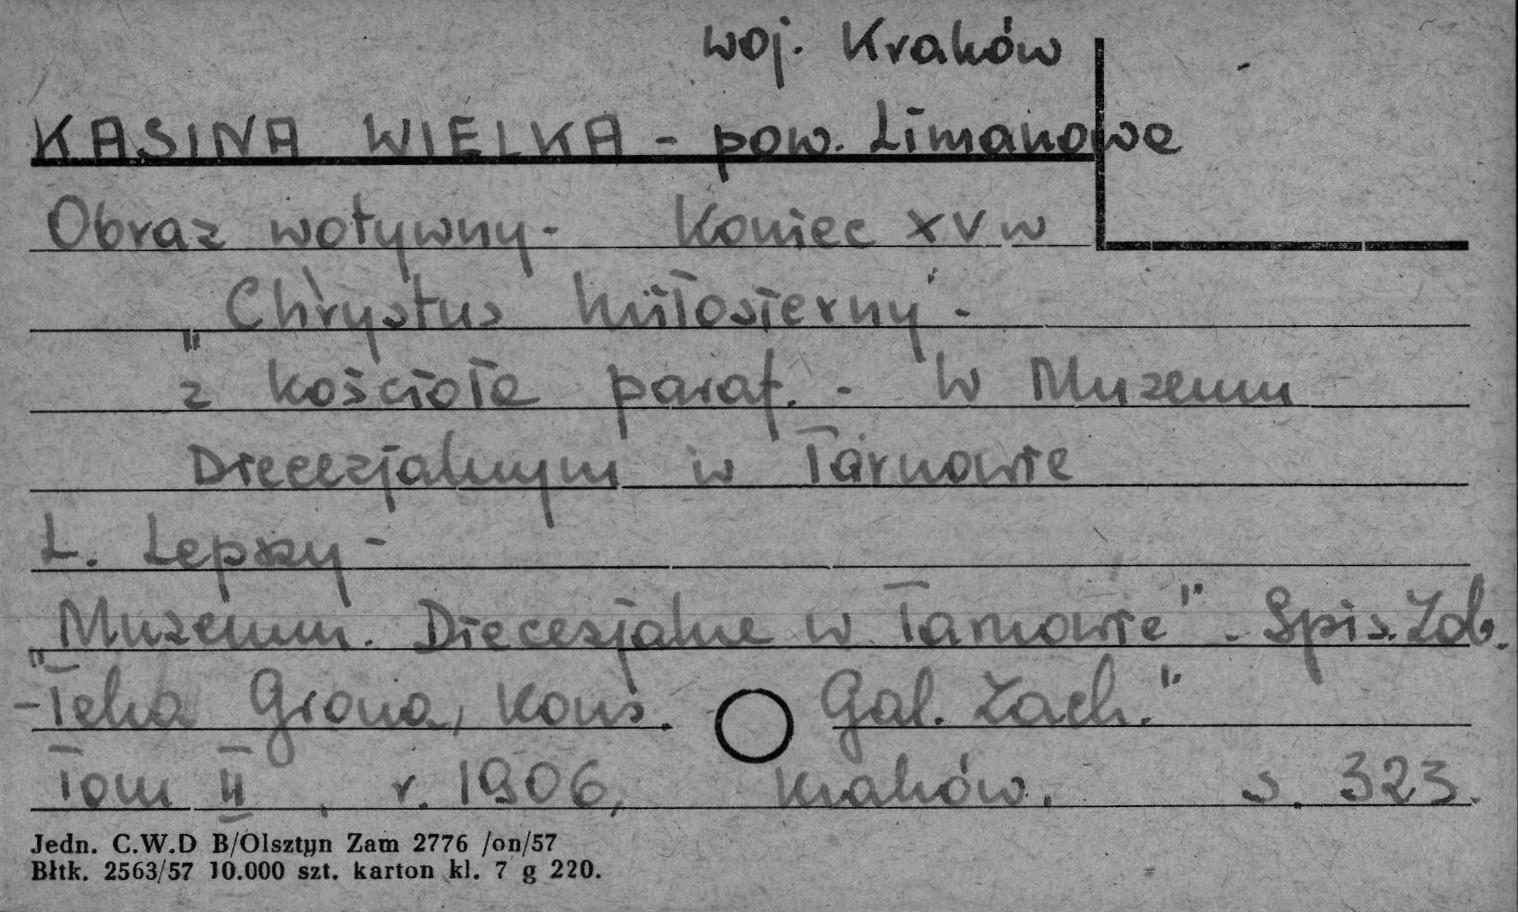 woj. Kraków
KASINA WIELKA - pow. Limanowa
Obraz wotywny - Koniec XV w
„Chrystus Miłosierny" -
z kościoła paraf. - w Muzeum
Diecezjalnym w Tarnowie
L. Lepszy -
„Muzeum. Diecezjalne w Tarnowie" - Spis. Zab.
- Teka Grona, Kons. Gal. Zach."
Tom II, r. 1906, Kraków. s. 323.
Jedn. C.W.D B/Olsztyn Zam 2776 /on/57
Błtk. 2563/57 10.000 szt. karton kl. 7 g 220.